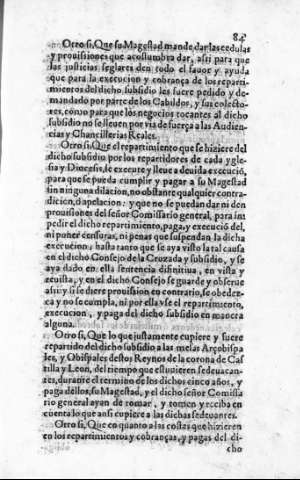 84
Otro si, Que su Magestad mande dar las cedulas
y prouisiones que acostumbra dar, assi para que
las justicias seglares den todo el fauor y ayuda
que para la execucion y cobrança de los reparti-
mientos del dicho subsidio les fuere pedido y de-
mandado por parte de los Cabildos, y sus colecto-
res, como para que los negocios tocantes al dicho
subsidio no se lleuen por via de fuerça a las Audien-
cias y Chancillerias Reales.
Otro si, Que el repartimiento que se hiziere del
dicho subsidio por los repartidores de cada ygle-
sia y Diocesis, se execute y lleue a deuida execució,
para que se pueda cumplir y pagar a su Magestad
sin ninguna dilacion, no obstante qualquier contra-
dicion, ò apelacion: y que no se puedan dar ni den
prouisiones del señor Comissario general, para im
pedir el dicho repartimiento, paga, y execució del,
ni poner censuras, ni penas que suspendan la dicha
execucion: hasta tanto que se aya visto la tal causa
en el dicho Consejo de la Cruzada y subsidio, y se
aya dado en ella sentencia difinitiua, en vista y
reuista, y en el dicho Consejo se guarde y obserue
assi: y si se diere prouision en contrario, se obedez-
ca y no se cumpla, ni por ella cesse el repartimiento,
execucion, y paga del dicho subsidio en manera
alguna.
Otro si, Que lo que justamente cupiere y fuere
repartido del dicho subsidio a las mesas Arçobispa
les, y Obispales destos Reynos de la corona de Cas
tilla y Leon, del tiempo que estuuieren sedeuacan-
tes, durante el termino de los dichos cinco años, y
paga dellos, su Magestad, y el dicho señor Comissa
rio general ayan de tomar, y tomen y reciba en
cuenta lo que ansi cupiere a las dichas sedeuantes.
Otro si, Que en quanto a las costas que hizieren
en los repartimientos y cobranças, y pagas del di-
cho